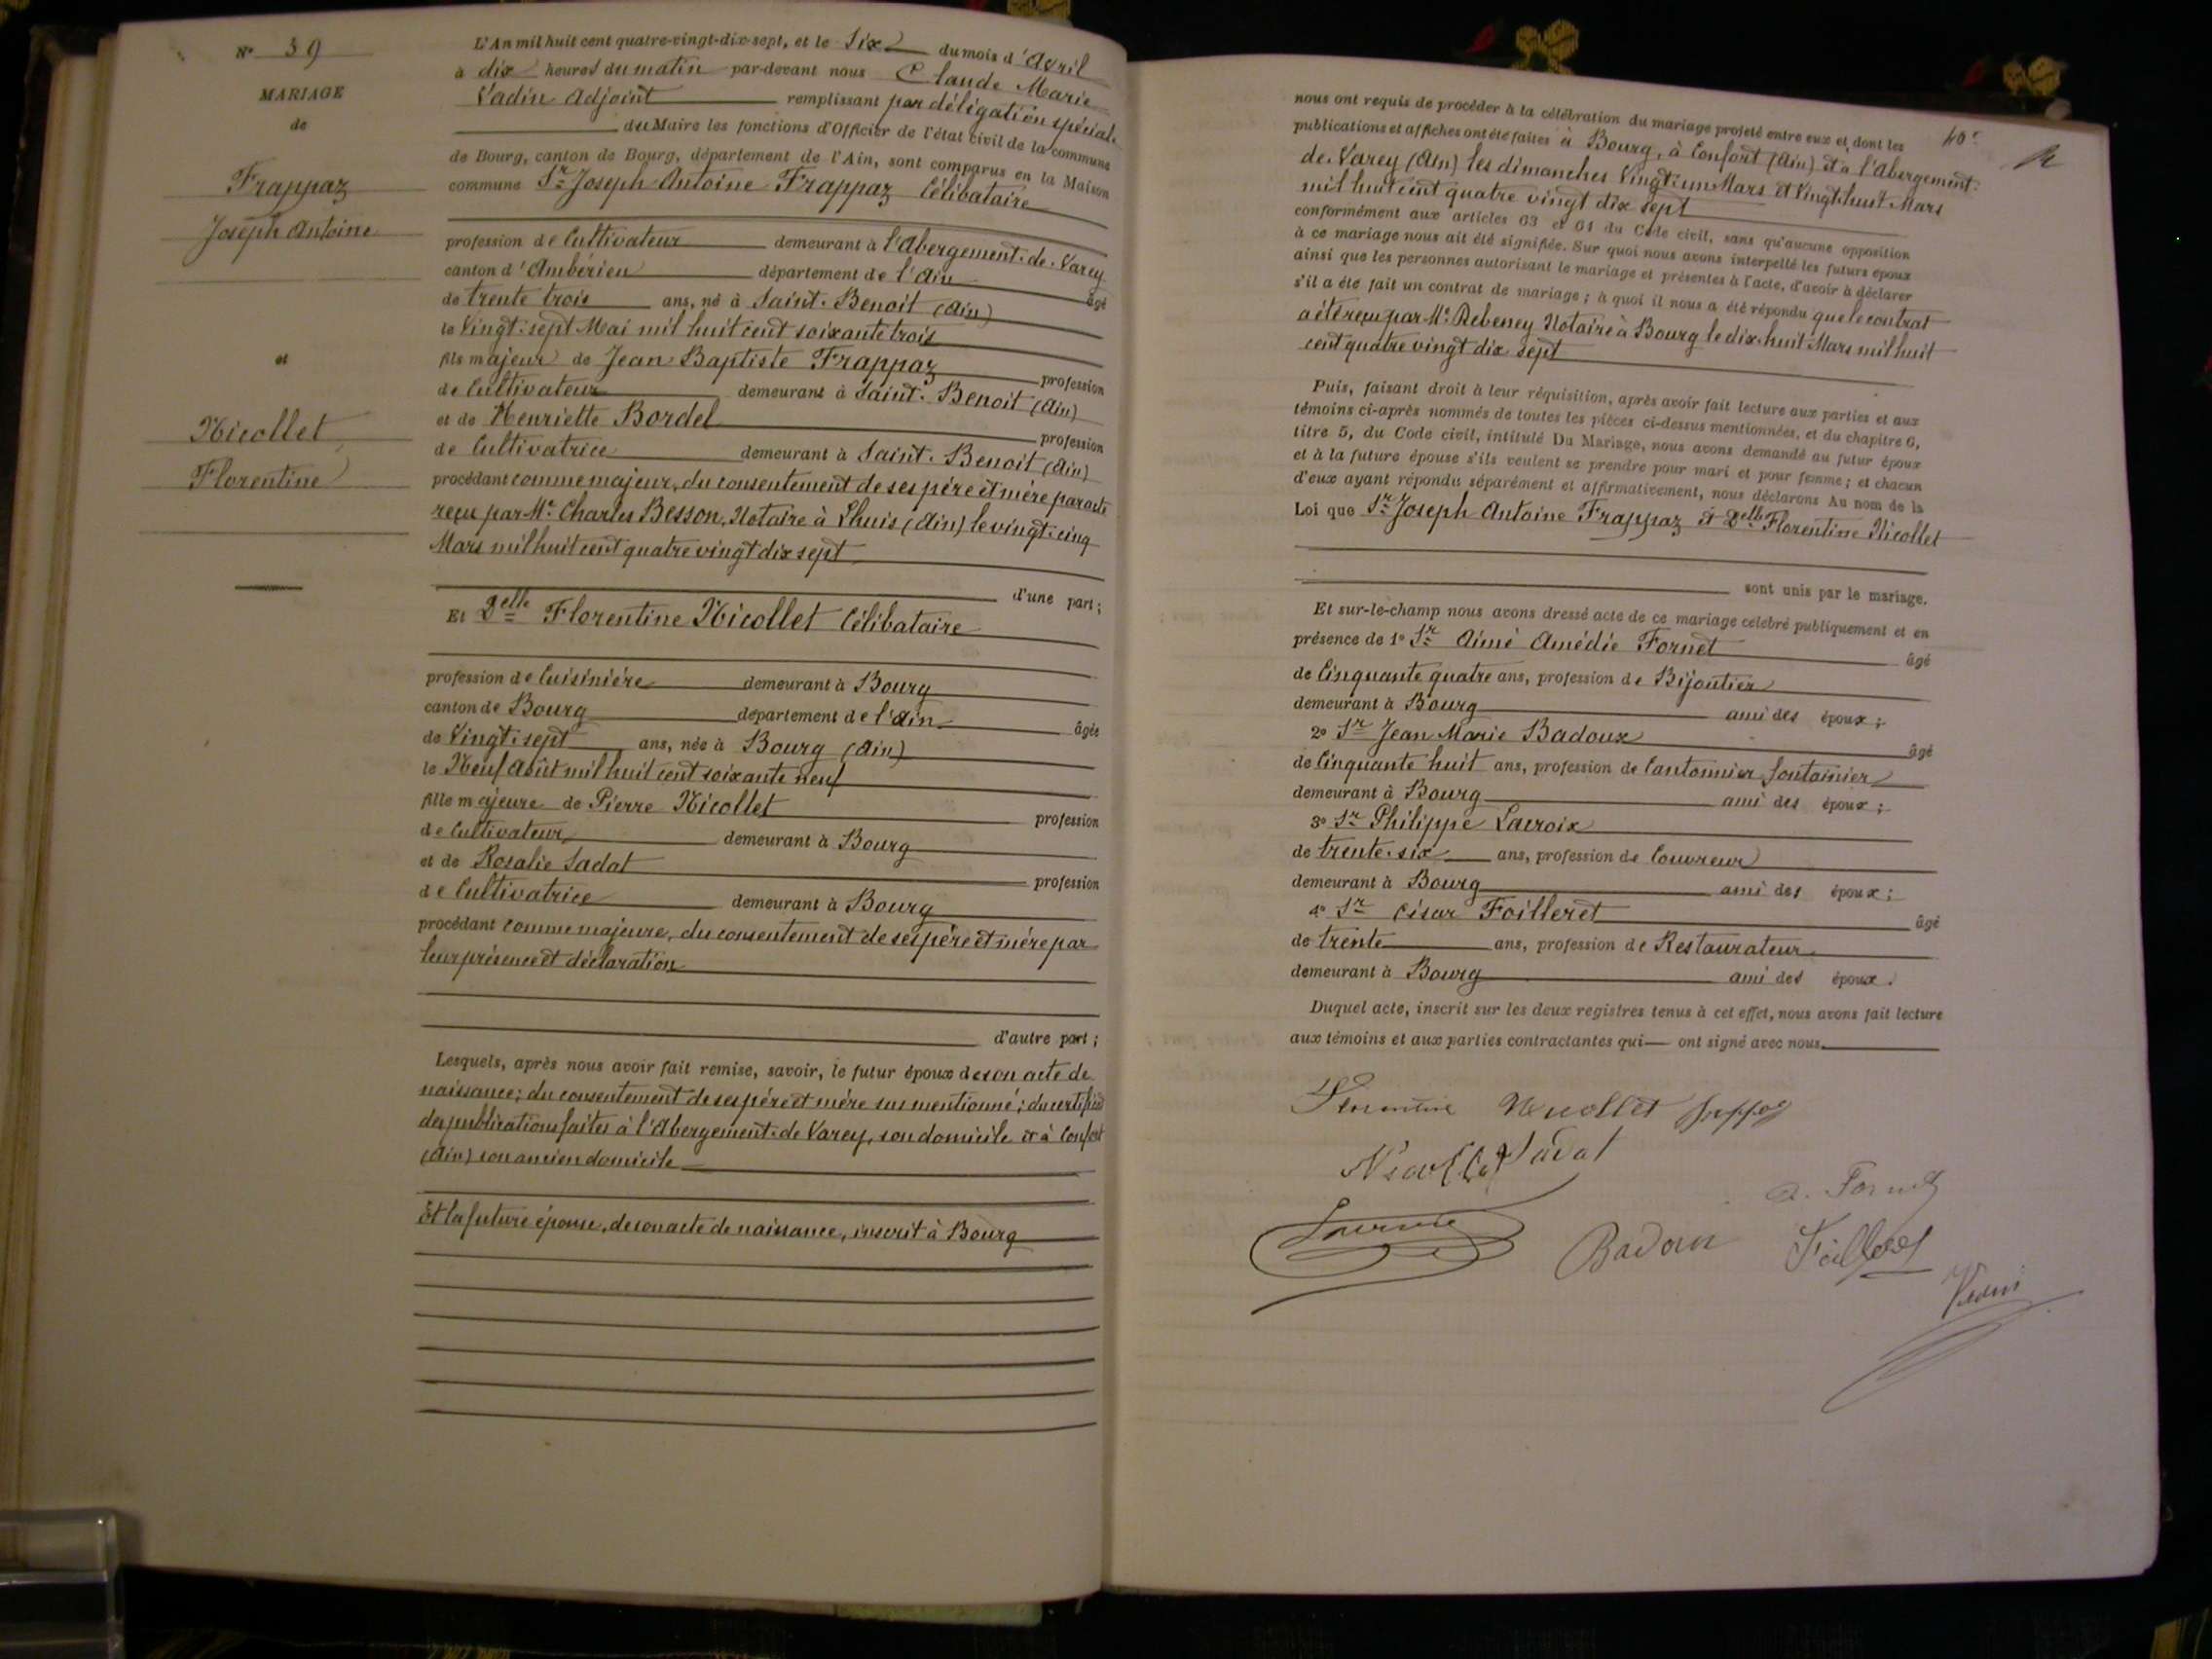 N° 39
MARIAGE
de
Frappaz
Joseph Antoine
et
Nicollet
Florentine
L'An mil huit cent quatre-vingt-dix-sept, et le Six du mois d'Avril
à dix heures du matin par-devant nous Claude Marie
Vadin Adjoint remplissant par délégation spéciale
du Maire les fonctions d'Officier de l'état civil de la commune
de Bourg, canton de Bourg, département de l'Ain, sont comparus en la Maison
commune Sr Joseph Antoine Frappaz Célibataire
profession de Cultivateur demeurant à l'Abergement-de-Varey
canton d'Ambérieu département de l'Ain âgé
de trente trois ans, né à Saint-Benoit (Ain)
le Vingt-sept Mai mil huit cent soixante trois
fils majeur de Jean Baptiste Frappaz profession
de Cultivateur demeurant à Saint-Benoit (Ain)
et de Henriette Bordel profession
de Cultivatrice demeurant à Saint-Benoit (Ain)
procédant comme majeur, du consentement de ses père et mère par acte
reçu par Me Charles Besson, Notaire à Lhuis (Ain) le vingt-cinq
Mars mil huit cent quatre vingt dix sept
d'une part;
Et Delle Florentine Nicollet Célibataire
profession de Cuisinière demeurant à Bourg
canton de Bourg département de l'Ain âgée
de Vingt-sept ans, née à Bourg (Ain)
le Neuf Août mil huit cent soixante neuf
fille majeure de Pierre Nicollet profession
de Cultivateur demeurant à Bourg
et de Rosalie Sadat profession
de Cultivatrice demeurant à Bourg
procédant comme majeure, du consentement de ses père et mère par
leur présence et déclaration
d'autre part;
Lesquels, après nous avoir fait remise, savoir, le futur époux de son acte de
naissance; du consentement de ses père et mère sus mentionné; du certificat
des publications faites à l'Abergement-de-Varey, son domicile et à Confort
(Ain) son ancien domicile
Et la future épouse, de son acte de naissance, inscrit à Bourg
40e
nous ont requis de procéder à la célébration du mariage projeté entre eux et dont les
publications et affiches ont été faites à Bourg, à Confort (Ain) et à l'Abergement-
de-Varey (Ain) les dimanches Vingt-un Mars et Vingt-huit Mars
mil huit cent quatre vingt dix sept
conformément aux articles 63 et 64 du Code civil, sans qu'aucune opposition
à ce mariage nous ait été signifiée. Sur quoi nous avons interpellé les futurs époux
ainsi que les personnes autorisant le mariage et présentes à l'acte, d'avoir à déclarer
s'il a été fait un contrat de mariage; à quoi il nous a été répondu que le contrat
a été reçu par Me Rebeney Notaire à Bourg le dix-huit Mars mil huit
cent quatre vingt dix sept
Puis, faisant droit à leur réquisition, après avoir fait lecture aux parties et aux
témoins ci-après nommés de toutes les pièces ci-dessus mentionnées, et du chapitre 6,
titre 5, du Code civil, intitulé Du Mariage, nous avons demandé au futur époux
et à la future épouse s'ils veulent se prendre pour mari et pour femme; et chacun
d'eux ayant répondu séparément et affirmativement, nous déclarons Au nom de la
Loi que Sr Joseph Antoine Frappaz et Delle Florentine Nicollet
sont unis par le mariage.
Et sur-le-champ nous avons dressé acte de ce mariage célébré publiquement et en
présence de 1° Sr Aimé Amédée Fornet âgé
de Cinquante quatre ans, profession de Bijoutier
demeurant à Bourg ami des époux;
2° Sr Jean Marie Badoux âgé
de Cinquante huit ans, profession de Cantonnier fontainier
demeurant à Bourg ami des époux;
3° Sr Philippe Lacroix
de trente-six ans, profession de Couvreur
demeurant à Bourg ami des époux;
4° Sr César Foilleret âgé
de trente ans, profession de Restaurateur
demeurant à Bourg ami des époux.
Duquel acte, inscrit sur les deux registres tenus à cet effet, nous avons fait lecture
aux témoins et aux parties contractantes qui ont signé avec nous.
Florentine Nicollet Frappaz
Nicollet Sadat
A. Fornet
Badoux Foilleret
Vadin